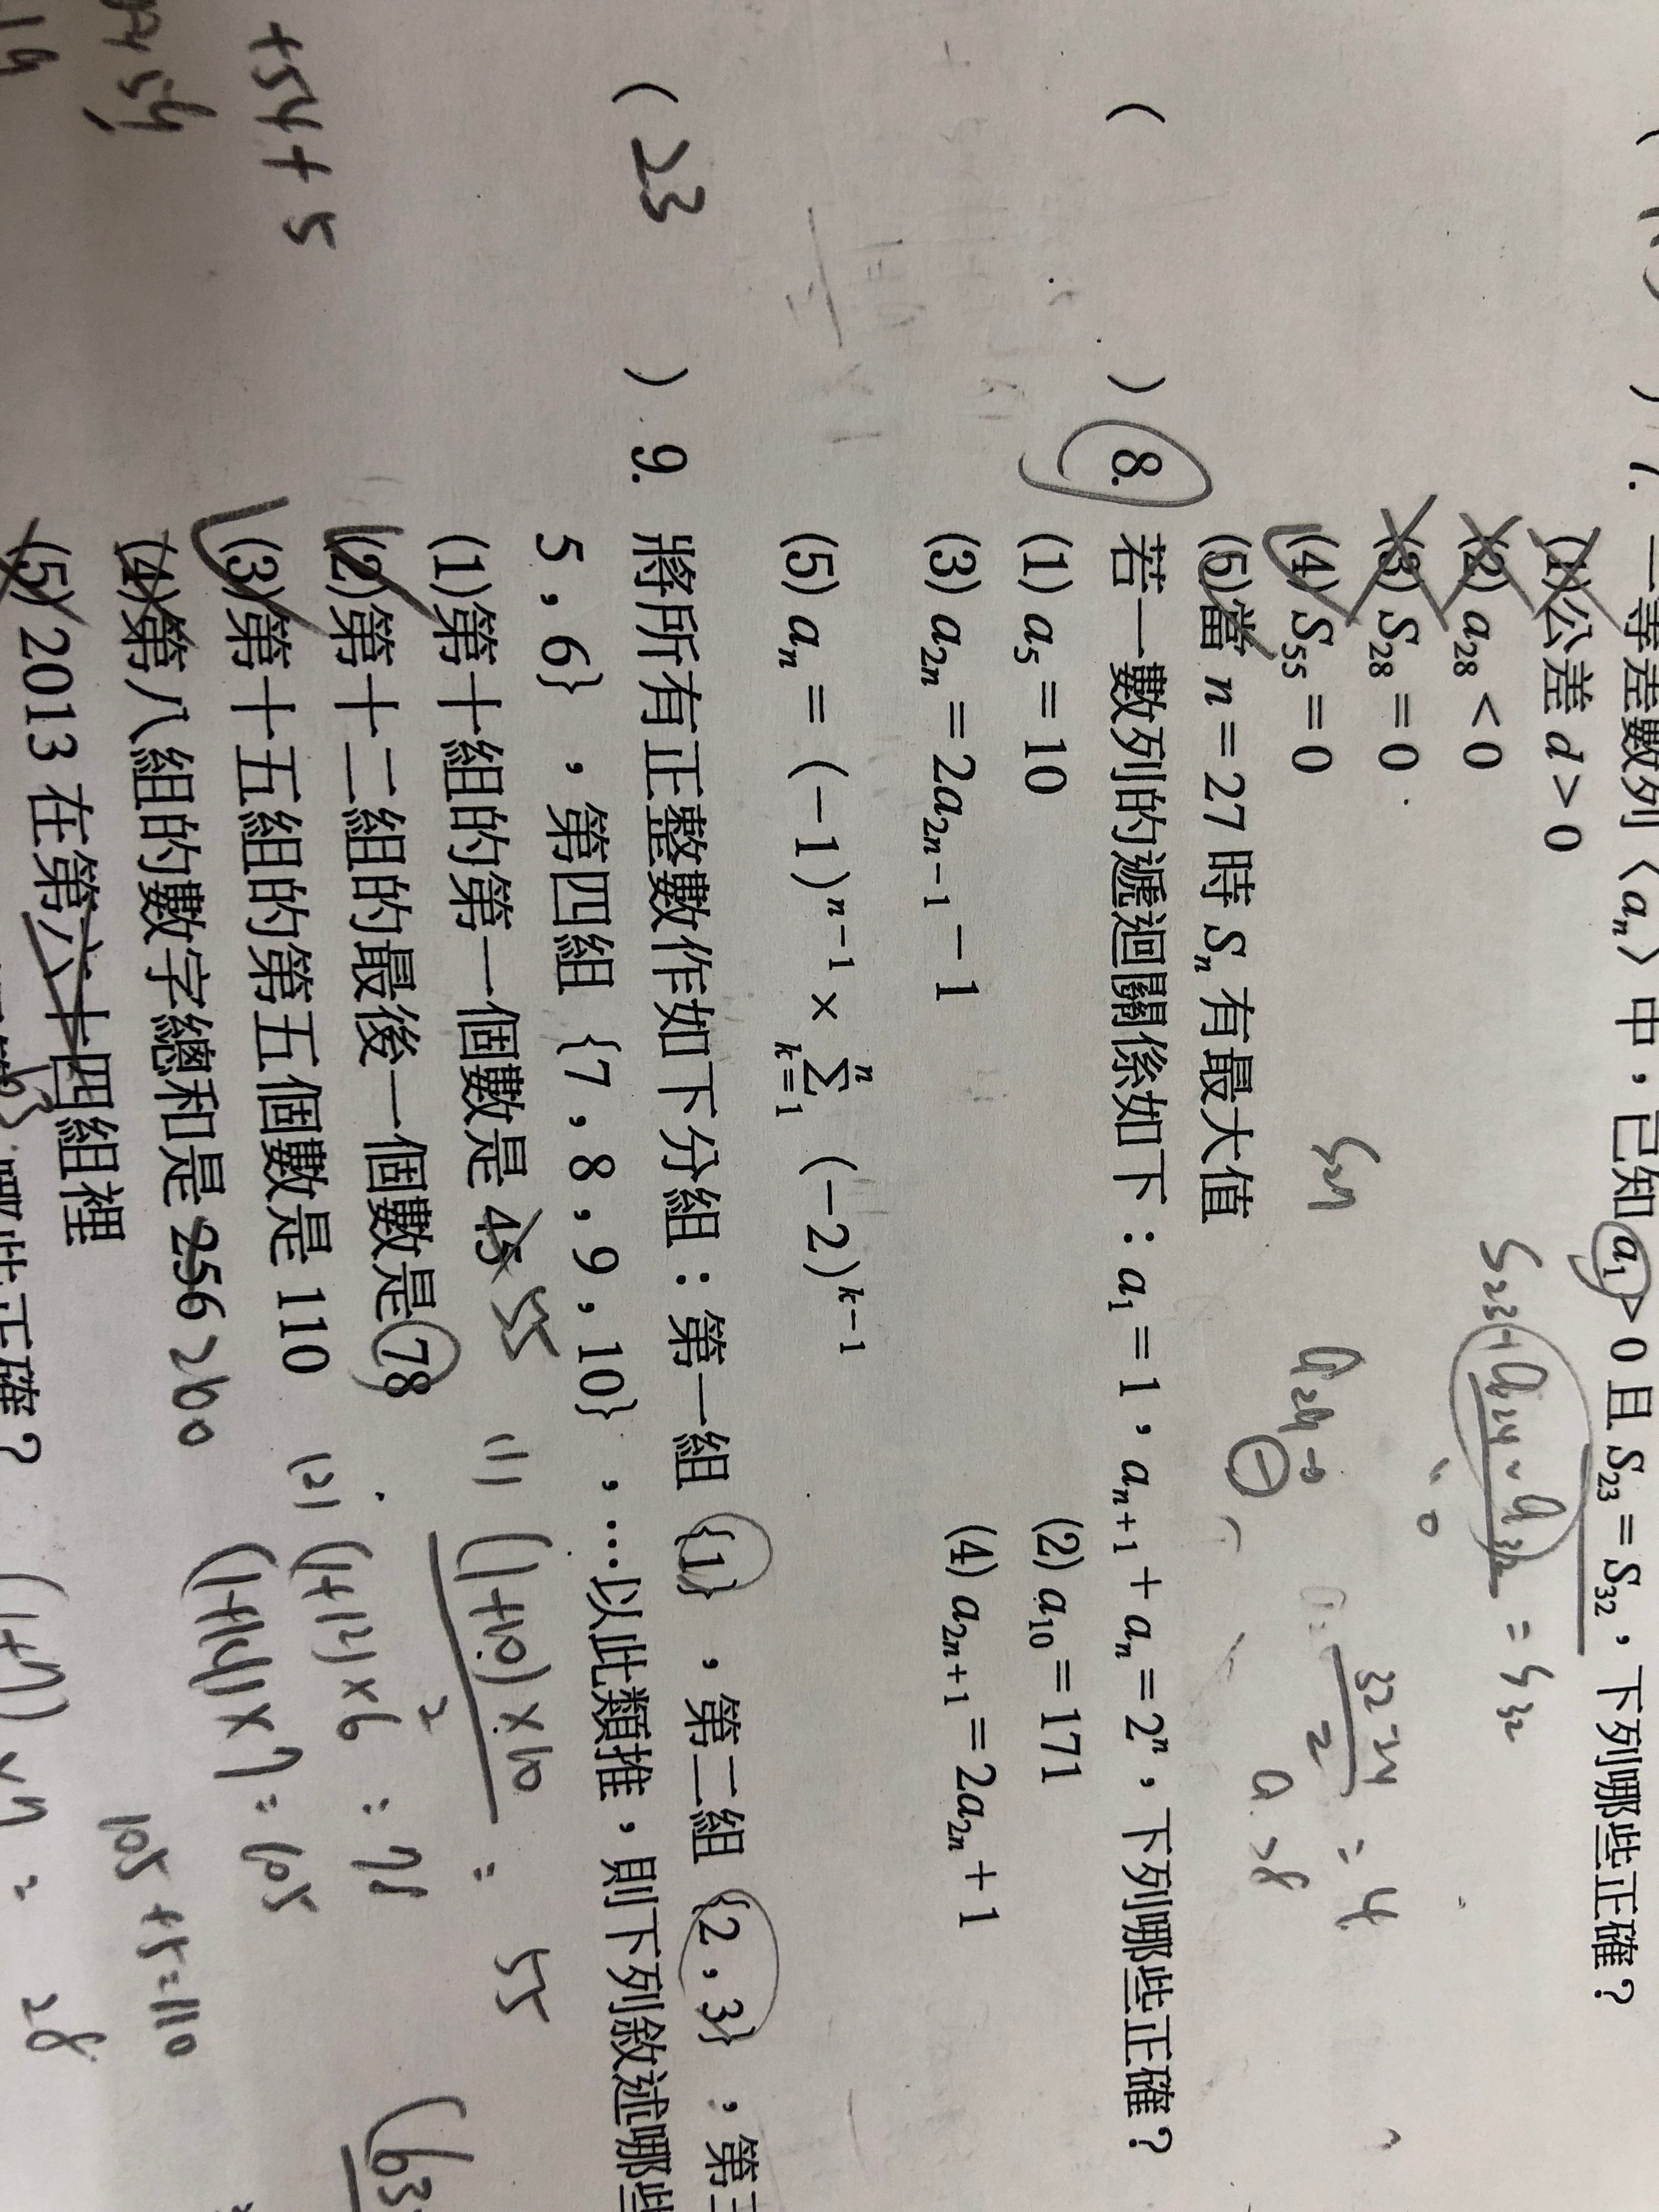 7. 一等差數列〈aₙ〉中，已知 a₁ > 0 且 S₂₃ = S₃₂，下列哪些正確？
(1)公差 d > 0
(2) a₂₈ < 0
(3) S₂₈ = 0
(4) S₅₅ = 0
(5)當 n = 27 時 Sₙ 有最大值
S₂₃ + a₂₄ ~ a₃₂ = S₃₂
0
32-24
2
= 4
a₂₈
(      ) 8. 若一數列的遞迴關係如下：a₁ = 1，aₙ₊₁ + aₙ = 2ⁿ，下列哪些正確？
(1) a₅ = 10    (2) a₁₀ = 171
(3) a₂ₙ = 2a₂ₙ₋₁ − 1    (4) a₂ₙ₊₁ = 2a₂ₙ + 1
(5) aₙ = (−1)ⁿ⁻¹ × Σₖ₌₁ⁿ (−2)ᵏ⁻¹
( 23 ) 9. 將所有正整數作如下分組：第一組 {1}，第二組 {2，3}，第三
5，6}，第四組 {7，8，9，10}，…以此類推，則下列敘述哪些
(1)第十組的第一個數是 45 55
(2)第十二組的最後一個數是 78
(3)第十五組的第五個數是 110
(4)第八組的數字總和是 256 260
(5) 2013 在第六十四組裡
(1+10)×10
2
= 55
(1+12)×6 = 78
(1+14)×7 = 105
105 + 5 = 110
+54 + 5
28
(63